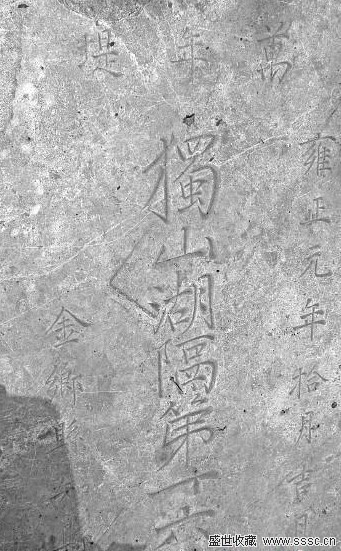 萬年堤
雍正元年拾月吉日
獨山湖隔第一六
金鄉縣
盛世收藏 www.sssc.cn